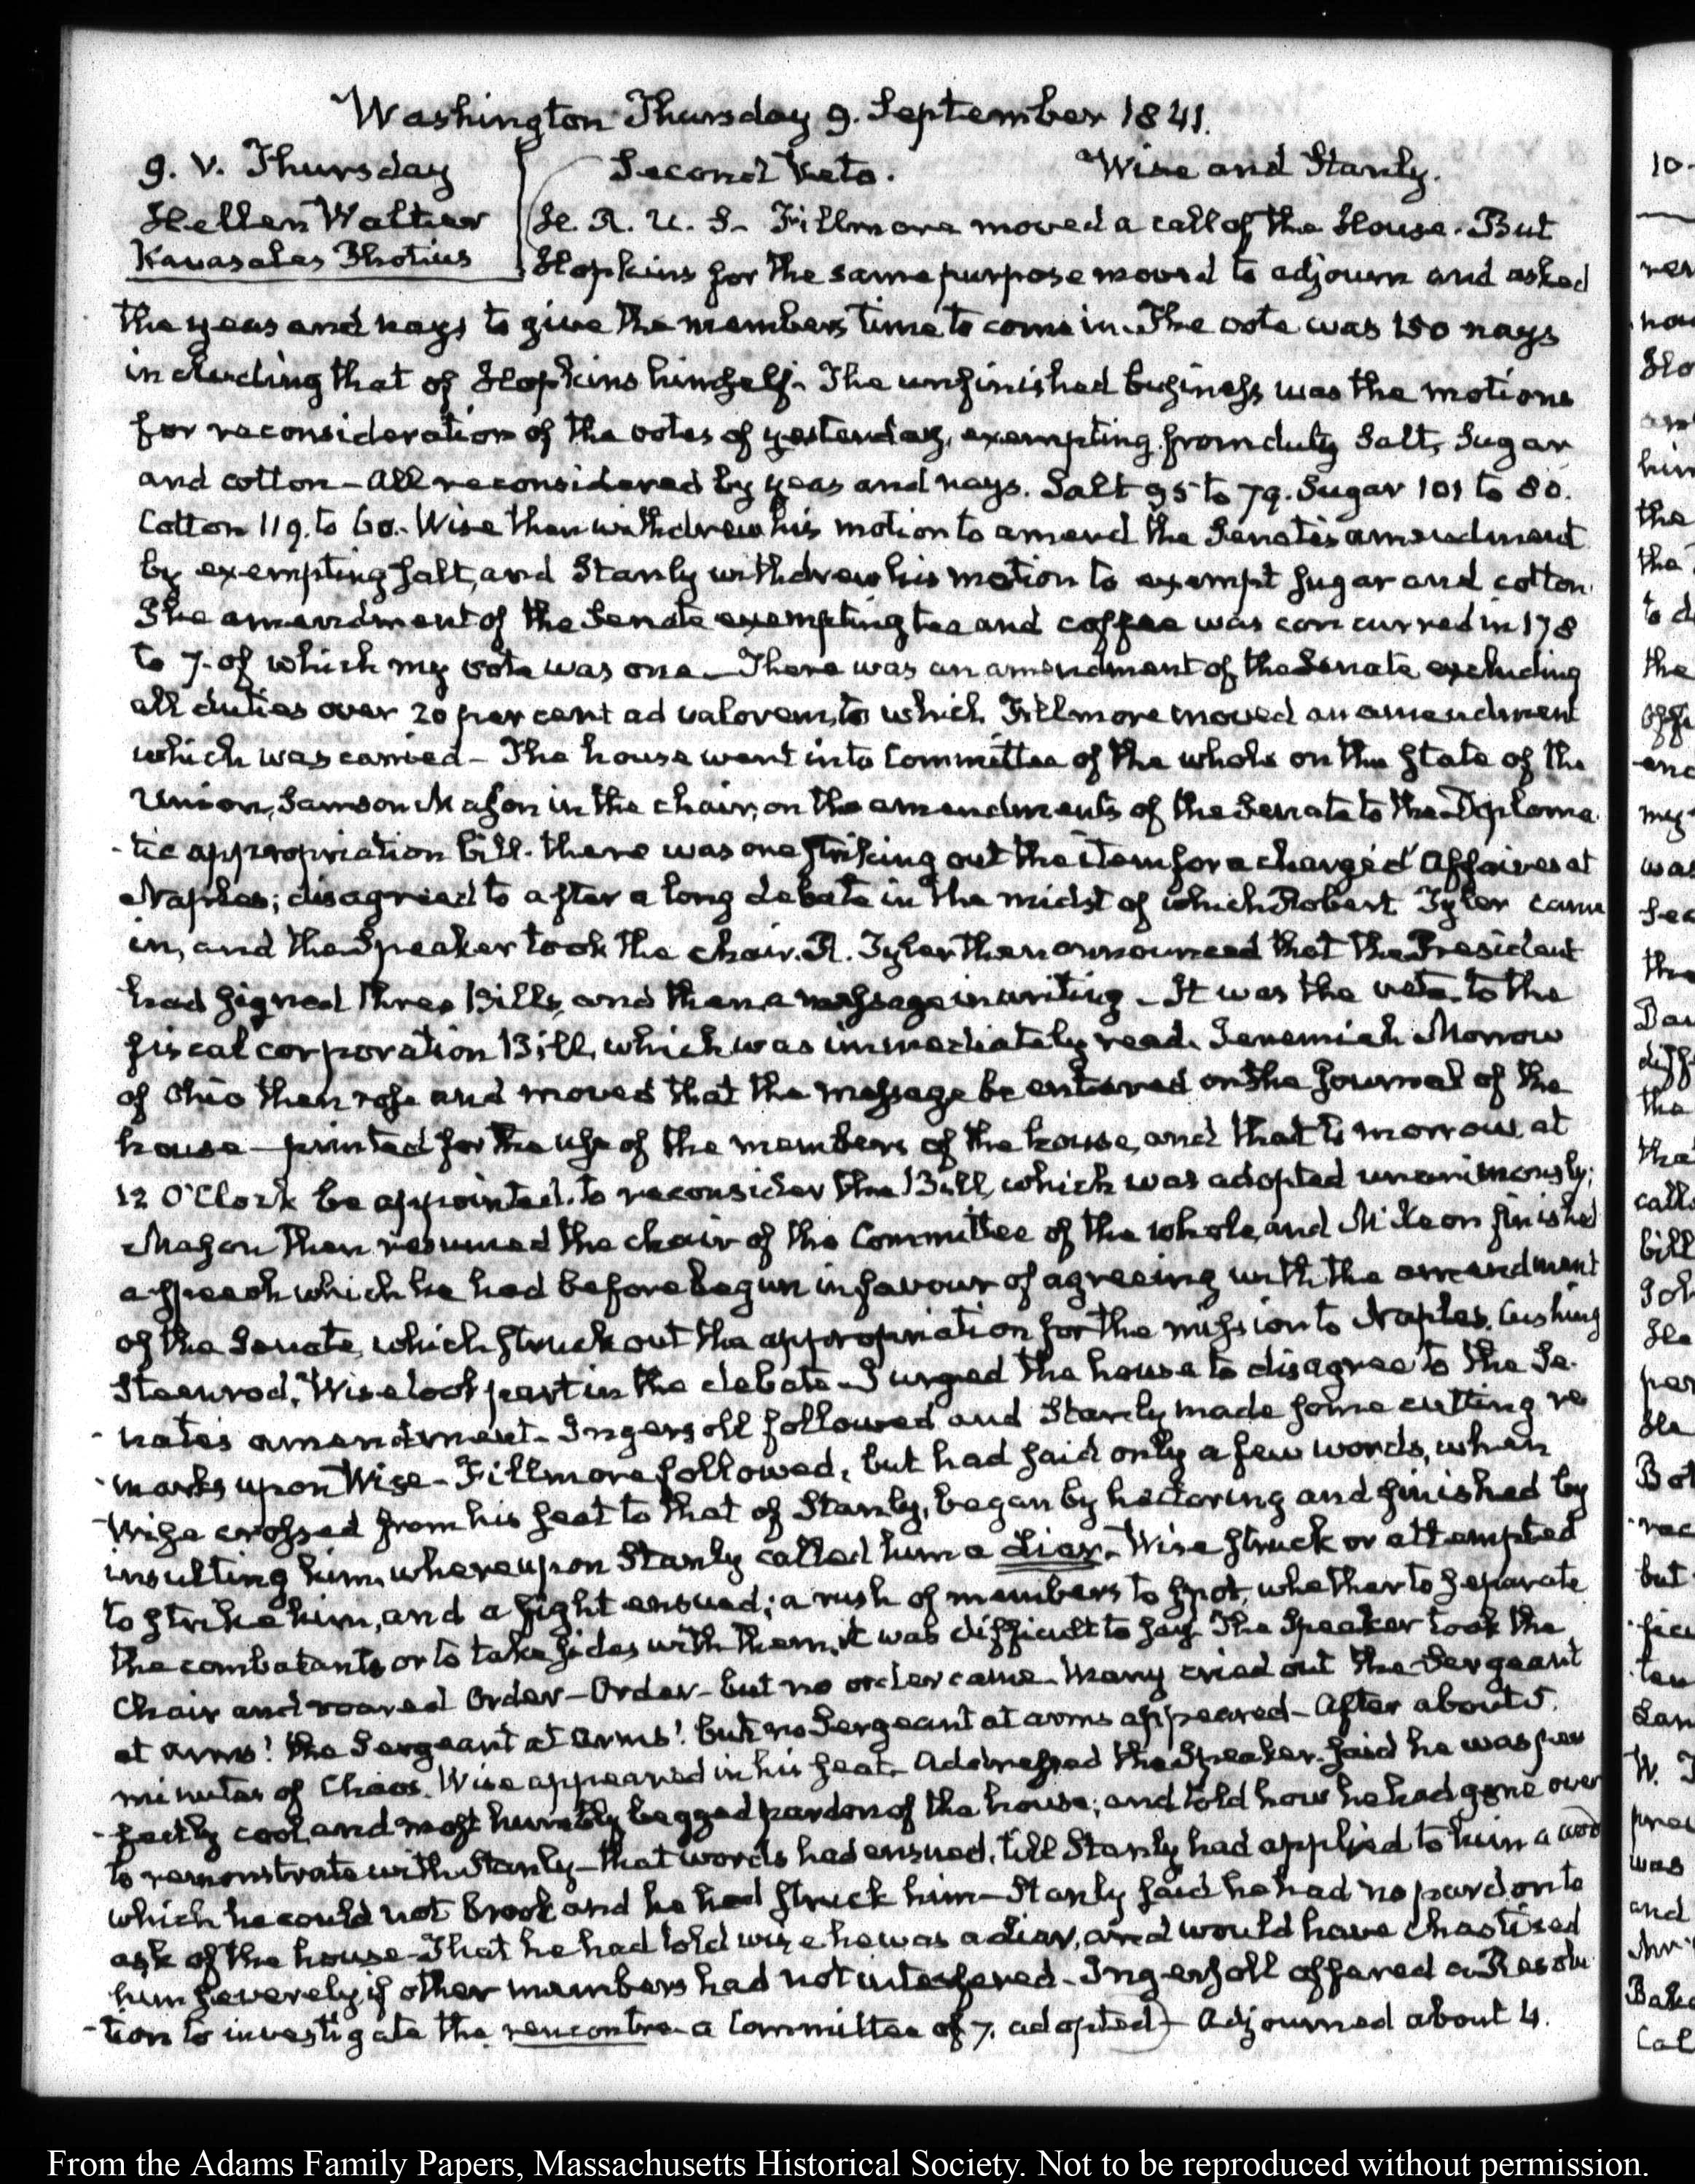 Washington Thursday 9. September 1841.
9. V. Thursday
Hellen Walter
Kavasales Photius
Second Veto. Wise and Stanly.
H. R. U. S. Fillmore moved a call of the House. But
Hopkins for the same purpose moved to adjourn and asked
the yeas and nays to give the members time to come in. The vote was 150 nays
including that of Hopkins himself. The unfinished business was the motions
for reconsideration of the votes of yesterday, exempting from duty Salt, Sugar
and cotton - All reconsidered by yeas and nays. Salt 95 to 79. Sugar 101 to 80.
Cotton 119. to 60. Wise then withdrew his motion to amend the Senate's amendment
by exempting Salt, and Stanly withdrew his motion to exempt Sugar and cotton.
The amendment of the Senate exempting tea and coffee was concurred in 178
to 7. of which my vote was one - There was an amendment of the Senate excluding
all duties over 20 per cent ad valorem, to which Fillmore moved an amendment
which was carried - The house went into Committee of the whole on the State of the
Union, Samson Mason in the chair, on the amendments of the Senate to the Diploma-
-tic appropriation bill. there was one striking out the item for a chargé d'Affaires at
Naples; disagreed to after a long debate in the midst of which Robert Tyler came
in, and the Speaker took the chair. R. Tyler then announced that the President
had signed three Bills, and then a message in writing - It was the veto to the
fiscal corporation Bill, which was immediately read. Jeremiah Morrow
of Ohio then rose and moved that the message be entered on the Journal of the
house - printed for the use of the members of the house, and that to morrow at
12 O'Clock be appointed to reconsider the Bill, which was adopted unanimously;
Mason then resumed the chair of the Committee of the whole, and McKeon finished
a speech which he had before begun in favour of agreeing with the amendment
of the Senate, which struck out the appropriation for the mission to Naples. Cushing
Steenrod, Wise took part in the debate - I urged the house to disagree to the Se-
-nate's amendment - Ingersoll followed and Stanly made some cutting re
-marks upon Wise - Fillmore followed, but had said only a few words, when
-Wise crossed from his seat to that of Stanly, began by hectoring and finished by
insulting him, whereupon Stanly called him a liar. Wise struck or attempted
to strike him, and a fight ensued; a rush of members to spot, whether to separate
the combatants or to take sides with them, it was difficult to say. The Speaker took the
Chair and roared Order - Order - but no order came - Many cried out the Sergeant
at arms! the Sergeant at Arms! but no Sergeant at arms appeared - After about 5.
minutes of Chaos, Wise appeared in his seat - Addressed the Speaker - said he was per
-fectly cool, and most humbly begged pardon of the house; and told how he had gone over
to remonstrate with Stanly - that words had ensued, till Stanly had applied to him a word
which he could not brook and he had struck him - Stanly said he had no pardon to
ask of the house - That he had told Wise he was a liar, and would have chastised
him severely if other members had not interfered - Ingersoll offered a Resolu-
-tion to investigate the rencontre a Committee of 7. adopted) - Adjourned about 4.
From the Adams Family Papers, Massachusetts Historical Society. Not to be reproduced without permission.